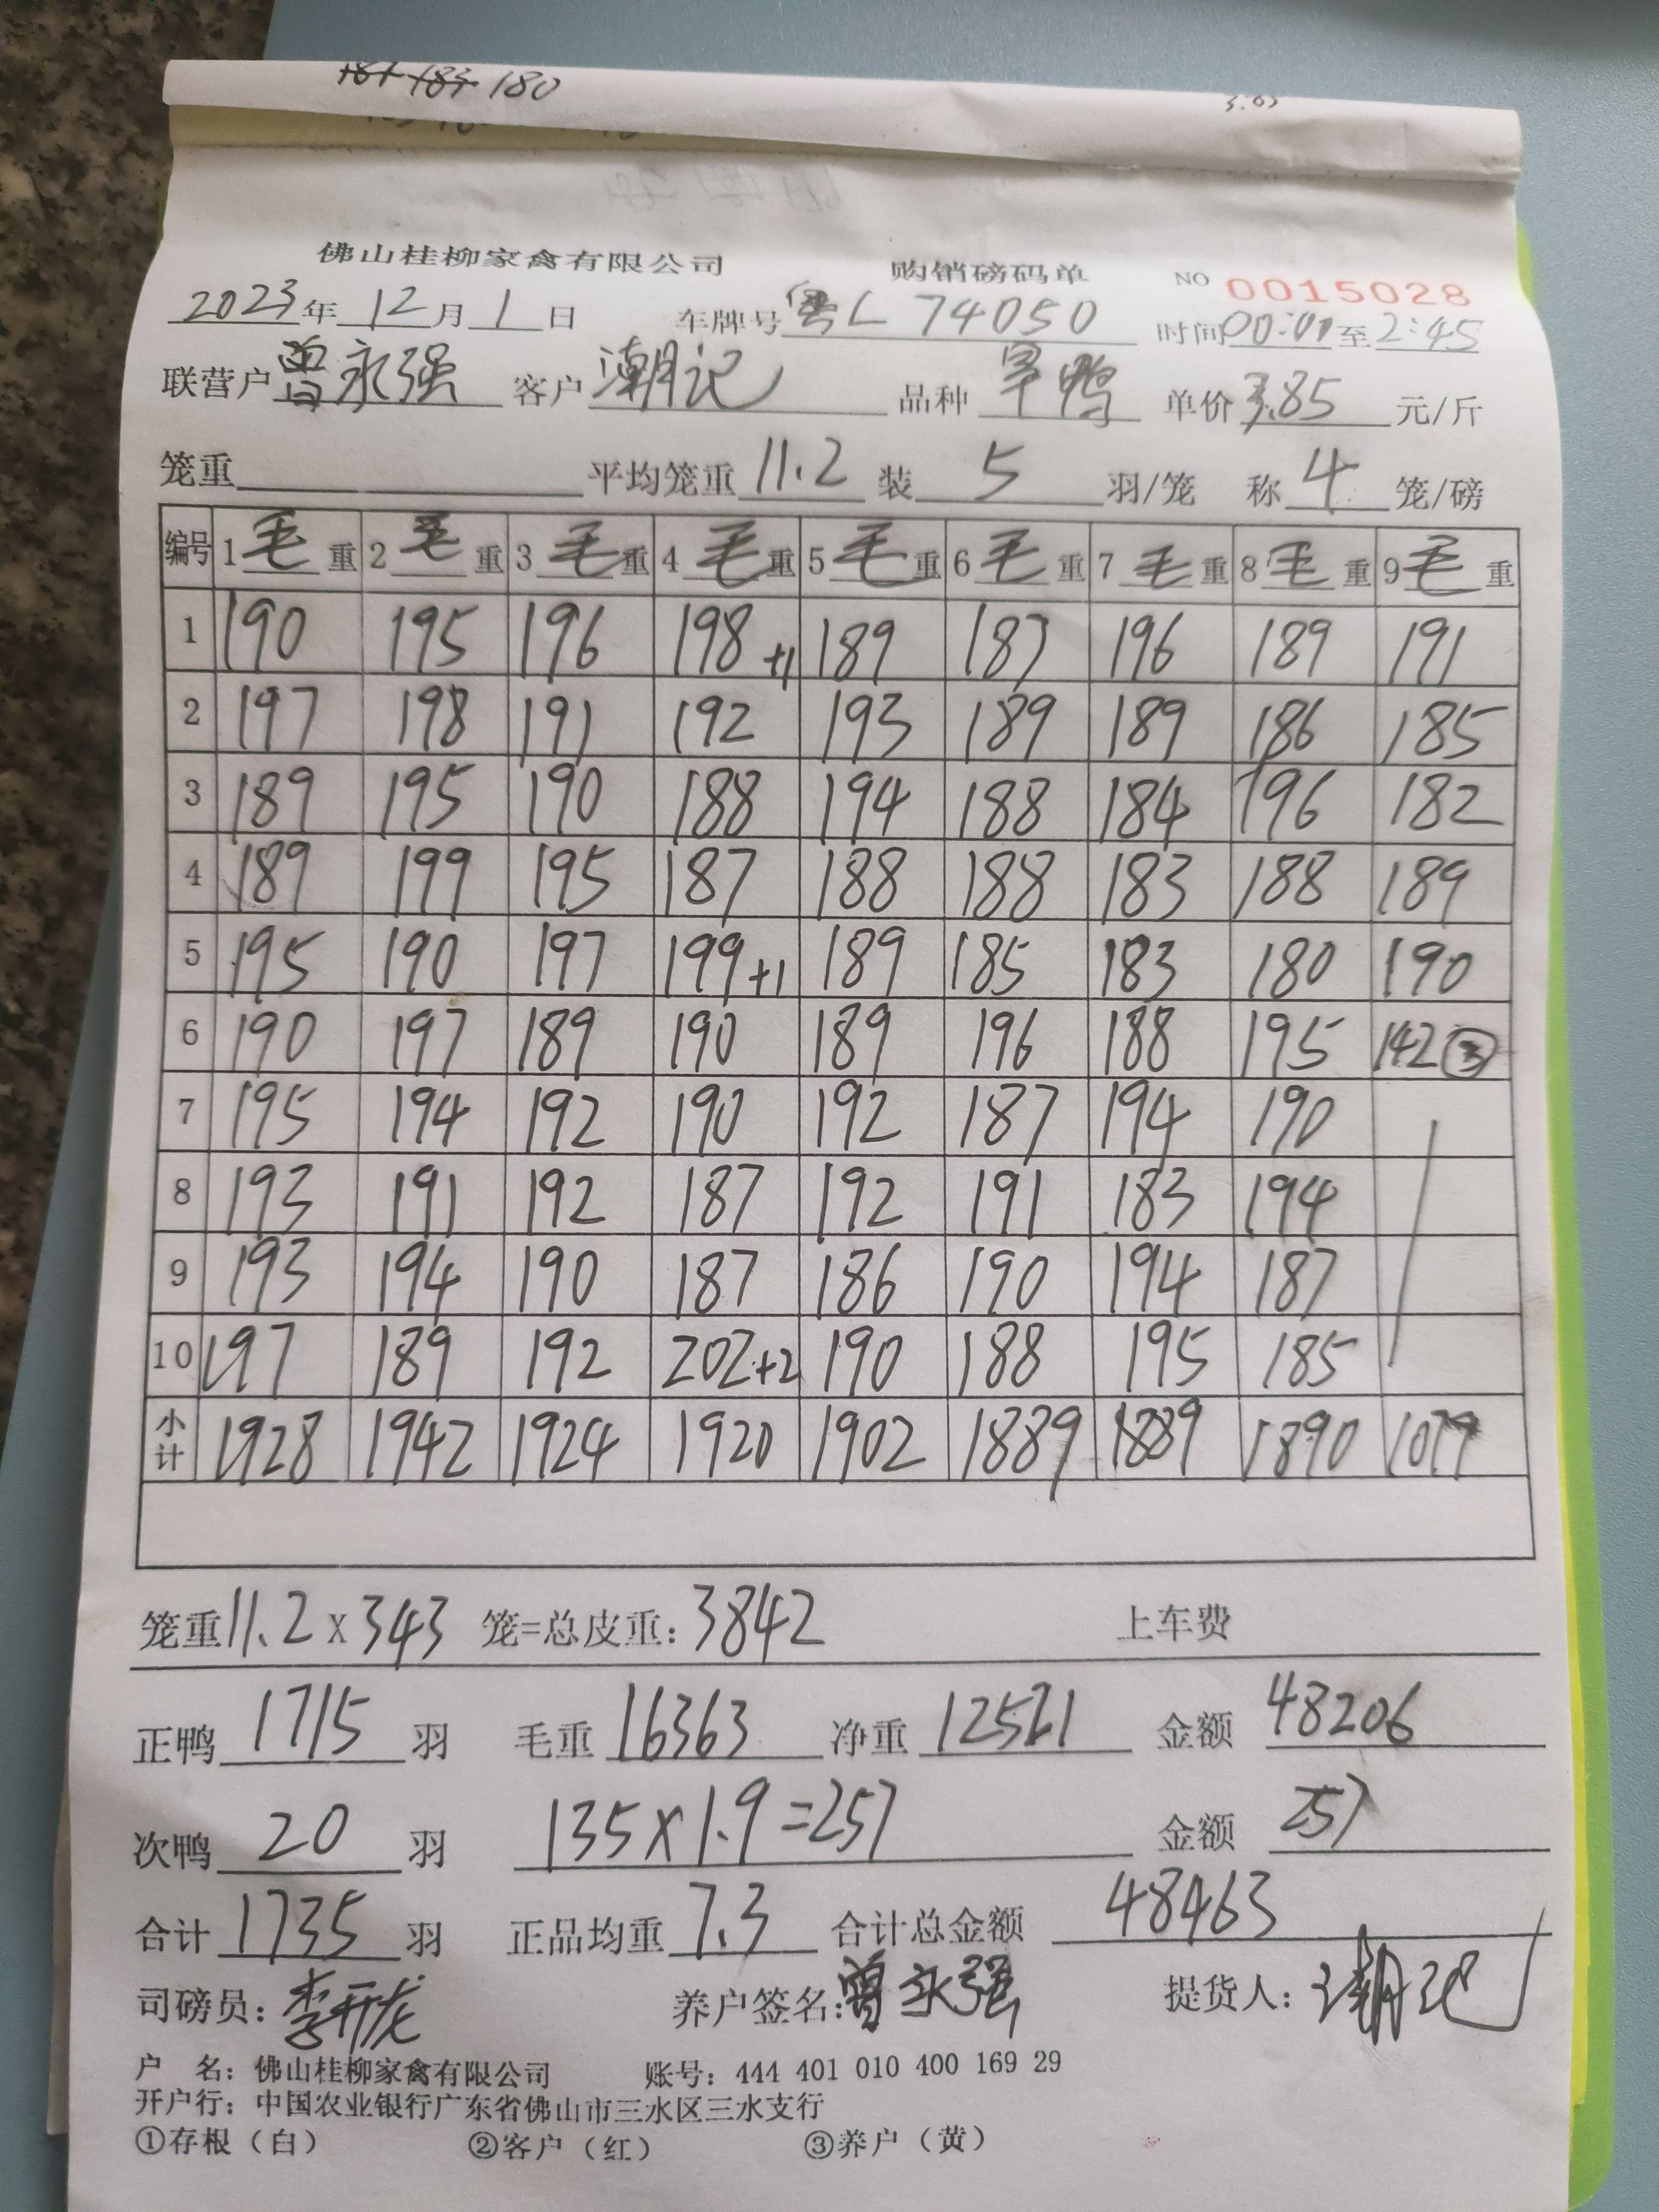 180
3.85
佛山桂柳家禽有限公司 购销磅码单 NO 0015028
2023年12月1日 车牌号粤L 74050 时间00:01至2:45
联营户曾永强 客户潮记 品种旱鸭 单价3.85元/斤
笼重 平均笼重11.2 装5羽/笼 称4笼/磅
编号 1毛重 2毛重 3毛重 4毛重 5毛重 6毛重 7毛重 8毛重 9毛重
1 190 195 196 198+1 189 187 196 189 191
2 197 198 191 192 193 189 189 186 185
3 189 195 190 188 194 188 184 196 182
4 189 199 195 187 188 188 183 188 189
5 195 190 197 199+1 189 185 183 180 190
6 190 197 189 190 189 196 188 195 142③
7 195 194 192 190 192 187 194 190
8 193 191 192 187 192 191 183 194
9 193 194 190 187 186 190 194 187
10 197 189 192 202+2 190 188 195 185
小计 1928 1942 1924 1920 1902 1889 1889 1890 1079
笼重11.2×343 笼=总皮重:3842 上车费
正鸭1715羽 毛重16363 净重12521 金额48206
次鸭20羽 135×1.9=257 金额257
合计1735羽 正品均重7.3 合计总金额48463
司磅员:李开龙 养户签名:曾永强 提货人:潮记
户 名:佛山桂柳家禽有限公司 账号:444 401 010 400 169 29
开户行:中国农业银行广东省佛山市三水区三水支行
①存根(白) ②客户(红) ③养户(黄)